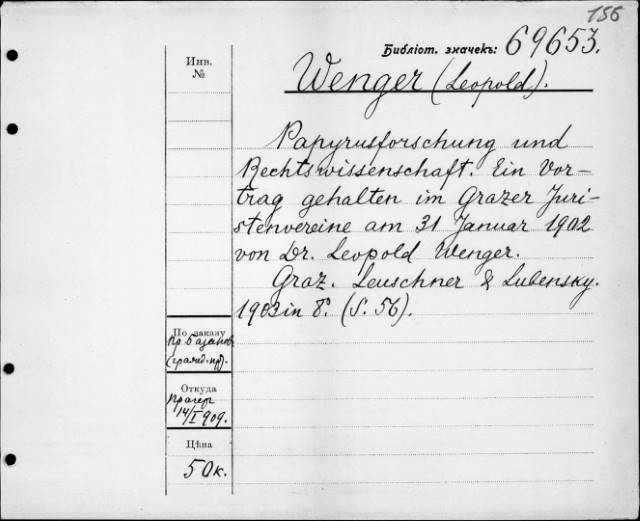 156
Библіот. значекъ: 69653.
Инв.
№
Wenger (Leopold).
Papyrusforschung und
Rechtswissenschaft. Ein Vor-
trag gehalten im Grazer Juri-
stenvereine am 31 Januar 1902
von Dr. Leopold Wenger.
Graz. Leuschner & Lubensky.
1903 in 8°. (S. 56).
По заказу
Откуда
14/I 909.
Цѣна
50 к.